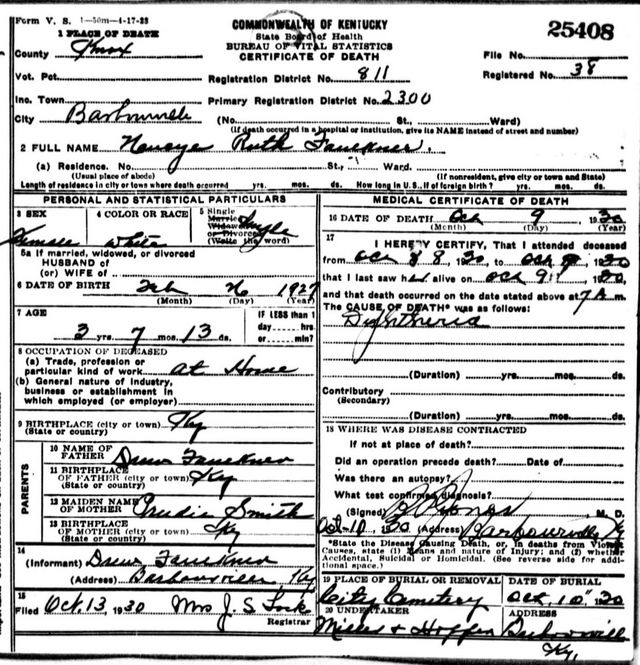 Form V. S. 1-50m-4-17-28
COMMONWEALTH OF KENTUCKY
State Board of Health
BUREAU OF VITAL STATISTICS
CERTIFICATE OF DEATH
25408
1 PLACE OF DEATH
County Knox
File No.
Vot. Pct.
Registration District No. 811
Registered No. 38
Inc. Town
Primary Registration District No. 2300
City Barbourville (No. St., Ward)
(If death occurred in a hospital or institution, give its NAME instead of street and number)
2 FULL NAME Ruth Faulkner.
(a) Residence. No. St., Ward.
(Usual place of abode) (If nonresident, give city or town and State)
Length of residence in city or town where death occurred yrs. mos. ds. How long in U. S., if of foreign birth? yrs. mos. ds.
PERSONAL AND STATISTICAL PARTICULARS
3 SEX
Female
4 COLOR OR RACE
White
5 Single
Married
Widowed
or Divorced
(Write the word)
Single
5a If married, widowed, or divorced
HUSBAND of
(or) WIFE of
6 DATE OF BIRTH Feb 26 1927
(Month) (Day) (Year)
7 AGE
3 yrs. 7 mos. 13 ds.
IF LESS than 1
day hrs.
or min?
8 OCCUPATION OF DECEASED
(a) Trade, profession or
particular kind of work at Home
(b) General nature of industry,
business or establishment in
which employed (or employer)
9 BIRTHPLACE (city or town) Ky
(State or country)
PARENTS
10 NAME OF
FATHER Drew Faulkner
11 BIRTHPLACE
OF FATHER (city or town) Ky
(State or country)
12 MAIDEN NAME
OF MOTHER Smith
13 BIRTHPLACE
OF MOTHER (city or town) Ky
(State or country)
14
(Informant) Drew Faulkner
(Address) Barbourville Ky
15
Filed Oct. 13, 1930 Mrs J. S. Lock
Registrar
MEDICAL CERTIFICATE OF DEATH
16 DATE OF DEATH Oct 9 1930
(Month) (Day) (Year)
17
I HEREBY CERTIFY, That I attended deceased
from Oct 8 1930, to Oct 9 1930
that I last saw her alive on Oct 9 1930
and that death occurred on the date stated above at 7 A m.
The CAUSE OF DEATH* was as follows:
Diphtheria
(Duration) yrs. mos. ds.
Contributory
(Secondary)
(Duration) yrs. mos. ds.
18 WHERE WAS DISEASE CONTRACTED
If not at place of death?
Did an operation precede death? Date of
Was there an autopsy?
What test confirmed diagnosis?
(Signed) M. D.
Oct-10 30 (Address) Barbourville Ky
*State the Disease Causing Death, or, in deaths from Violent
Causes, state (1) Means and nature of Injury; and (2) whether
Accidental, Suicidal or Homicidal. (See reverse side for addi-
tional space.)
19 PLACE OF BURIAL OR REMOVAL
City Cemetery
DATE OF BURIAL
Oct. 10" 1930
20 UNDERTAKER
ADDRESS
Barbourvill
Ky.